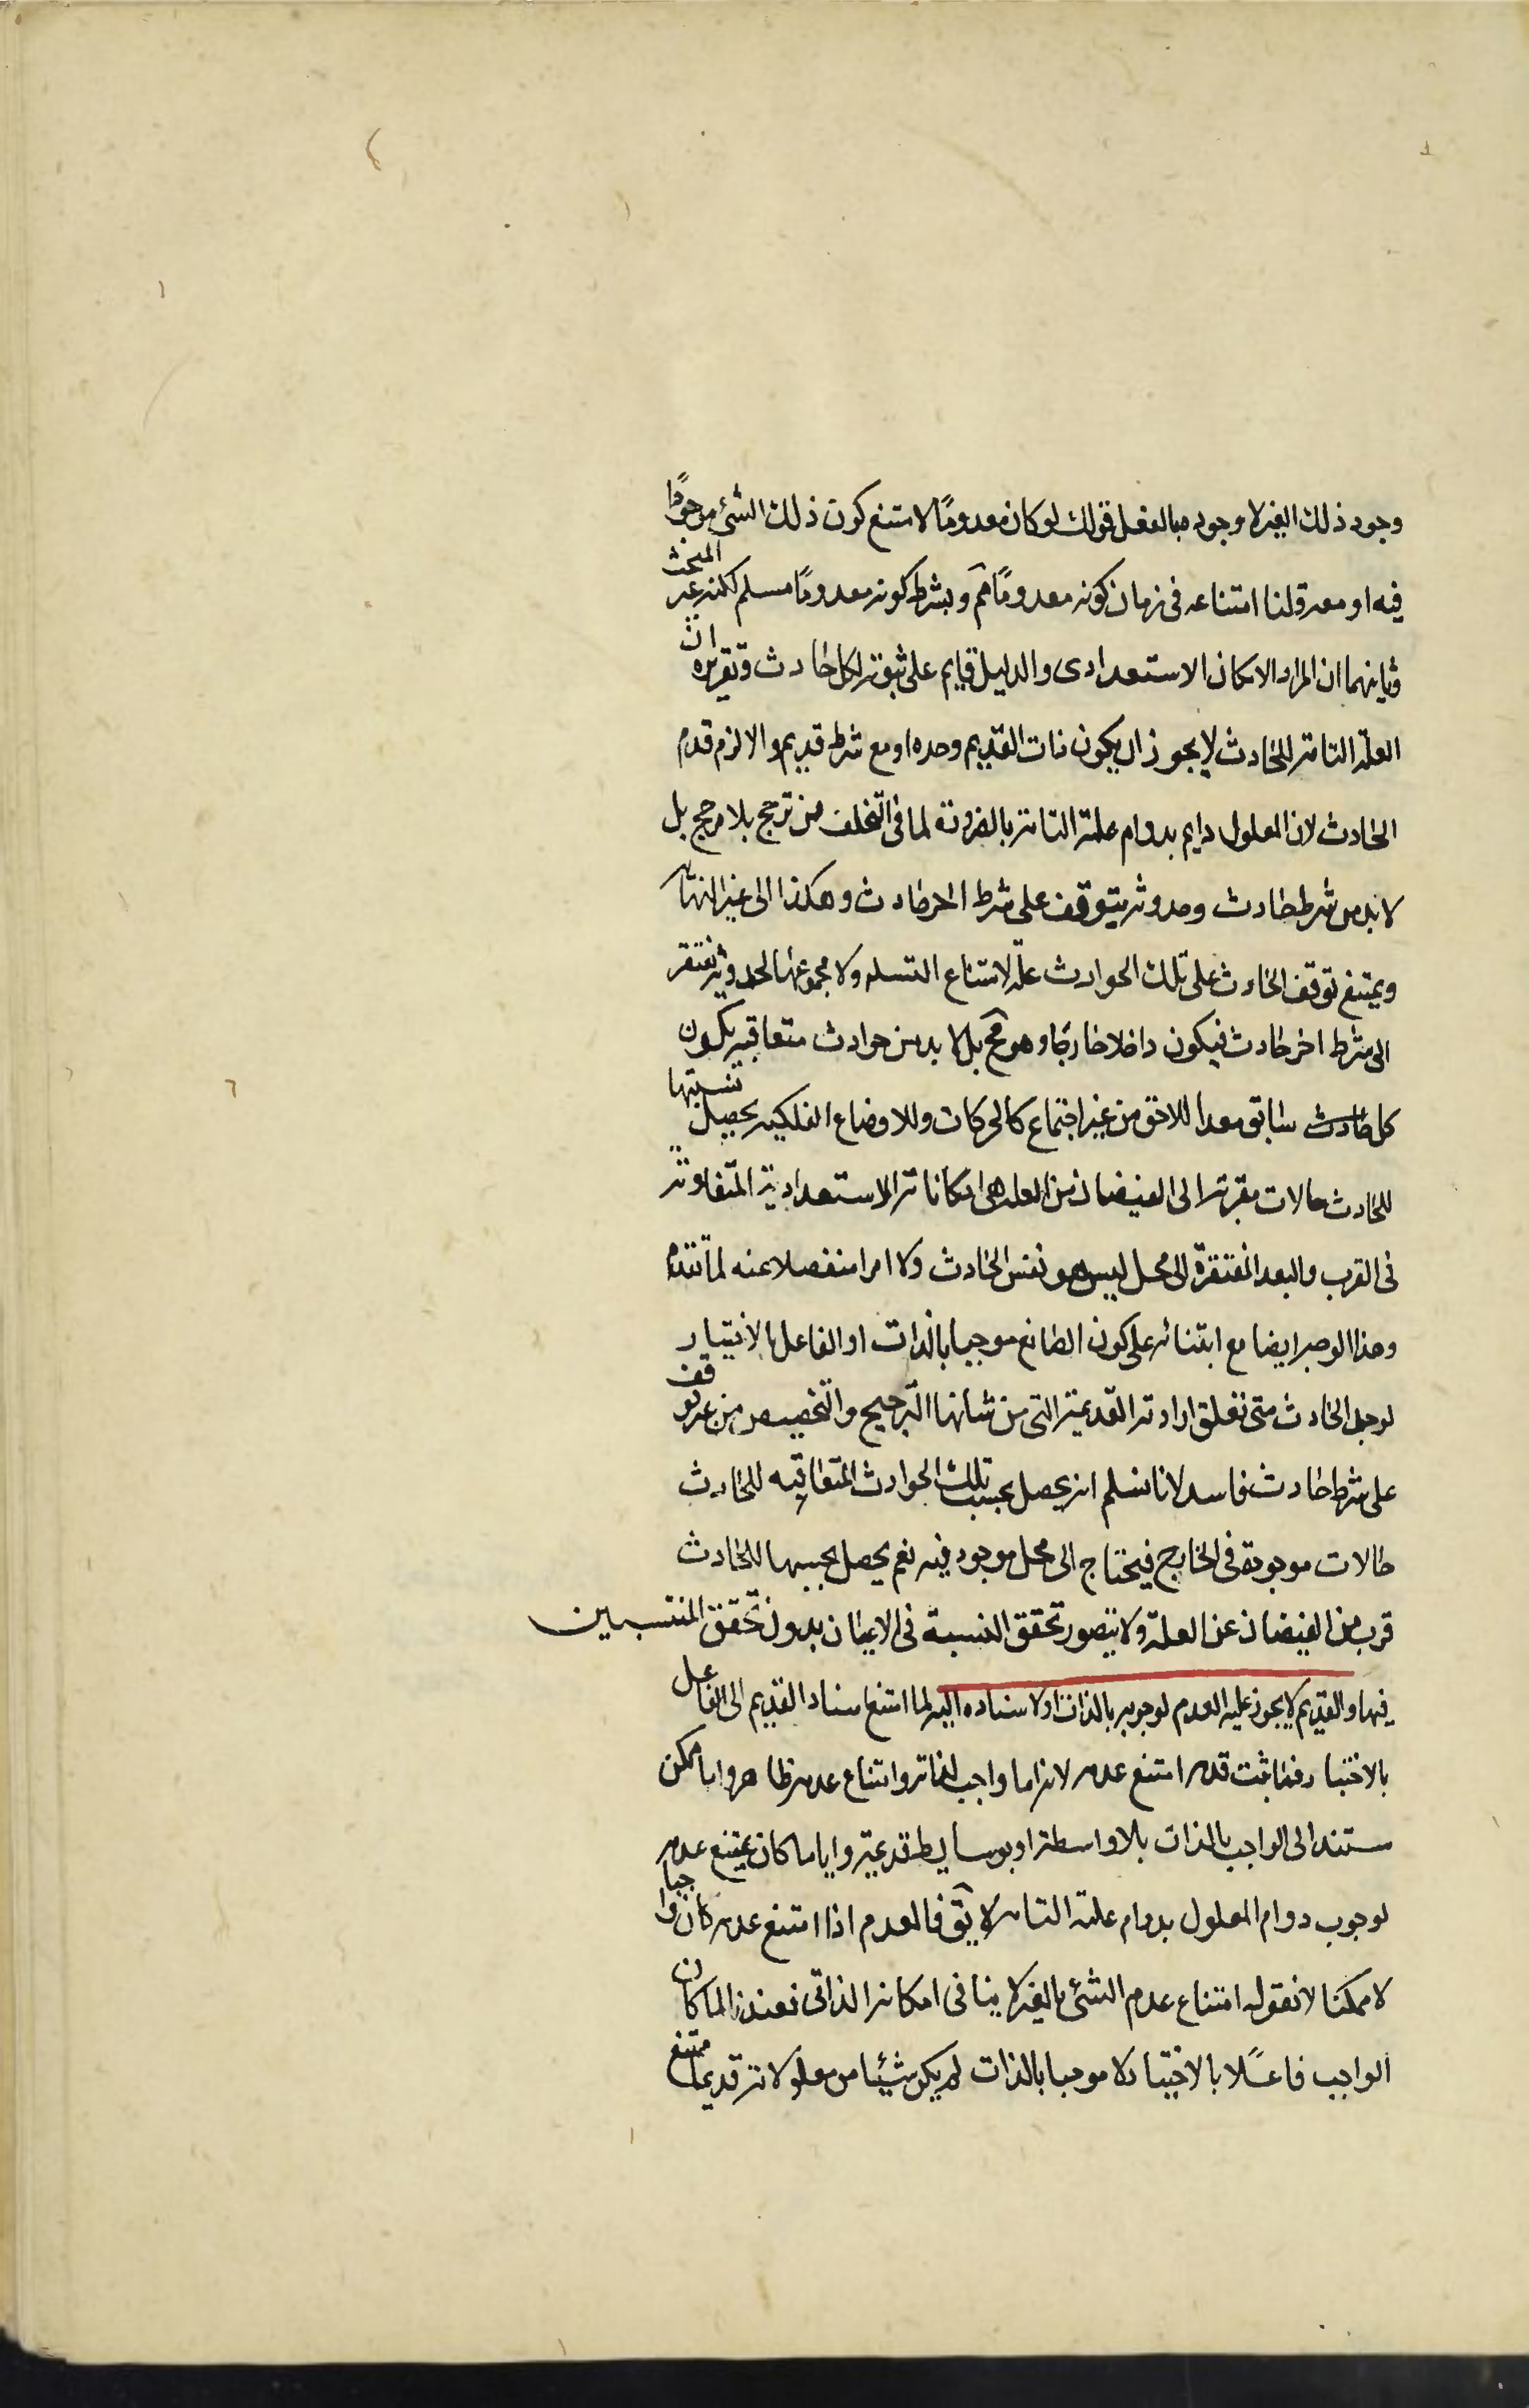 وجود ذلك الغير لا وجوده بالفعل قولك لو كان معدومًا لامتنع كون ذلك الشئ موجودًا
فيه او معه قلنا امتناعه فى زمان كونه معدومًا مم وبشرط كونه معدومًا مسلم لكنه غير المبحث
وثانيهما ان المراد الامكان الاستعدادى والدليل قايم على ثبوته لكل حادث وتقريره ان
العلة التامة للحادث لا يجوز ان يكون ذات القديم وحده او مع شرط قديم والا لزم قدم
الحادث لان المعلول دايم بدوام علته التامة بالضرورة لما فى التخلف من ترجح بلا مرجح بل
لا بد من شرط حادث وحدوثه يتوقف على شرط اخر حادث وهكذا الى غير النهاية
ويمتنع توقف الحادث على تلك الحوادث جملة لامتناع التسلسل ولا مجموعها لحدوثه يفتقر
الى شرط اخر حادث فيكون داخلا خارجًا وهو مح بل لا بد من حوادث متعاقبة يكون
كل حادث سابق معدا للاحق من غير اجتماع كالحركات وللاوضاع الفلكية يحصل نسبتها
للحادث حالات مقربة الى الفيضان من العلة هى امكاناته الاستعدادية المتفاوتة
فى القرب والبعد المفتقرة الى محل ليس هو نفس الحادث ولا امرا منفصلا عنه لما تقدم
وهذا الوجه ايضا مع ابتنائه على كون الصانع موجبا بالذات او الفاعل بالاختيار
يوجد الحادث متى تعلق ارادته القديمة التى من شانها الترجيح والتخصيص من غير توقف
على شرط حادث فاسد لانا نسلم انه يحصل بحسب تلك الحوادث المتعاقبة للحادث
حالات موجودة فى الخارج فيحتاج الى محل موجود فيه نعم يحصل بحسبها للحادث
قرب من الفيضان عن العلة ولا يتصور تحقق النسبة فى الاعيان بدون تحقق المنتسبين
فيها والقديم لا يجوز عليه العدم لوجوبه بالذات او لاستناده اليه لما امتنع استناد القديم الى الفاعل
بالاختيار فما ثبت قدمه امتنع عدمه لانه اما واجب لذاته وامتناع عدمه ظاهر واما ممكن
مستند الى الواجب بالذات بلا واسطة او بوسايط قديمة واياما كان يمتنع عدمه
لوجوب دوام المعلول بدوام علته التامه لا يق فالعدم اذا امتنع عدمه كان واجبا
لا ممكنا لانا نقول امتناع عدم الشئ بالغير لا ينافى امكانه الذاتى فعندنا لما كان
الواجب فاعلًا بالاختيار لا موجبا بالذات لم يكن شيئا من معلولاته قديما يمتنع